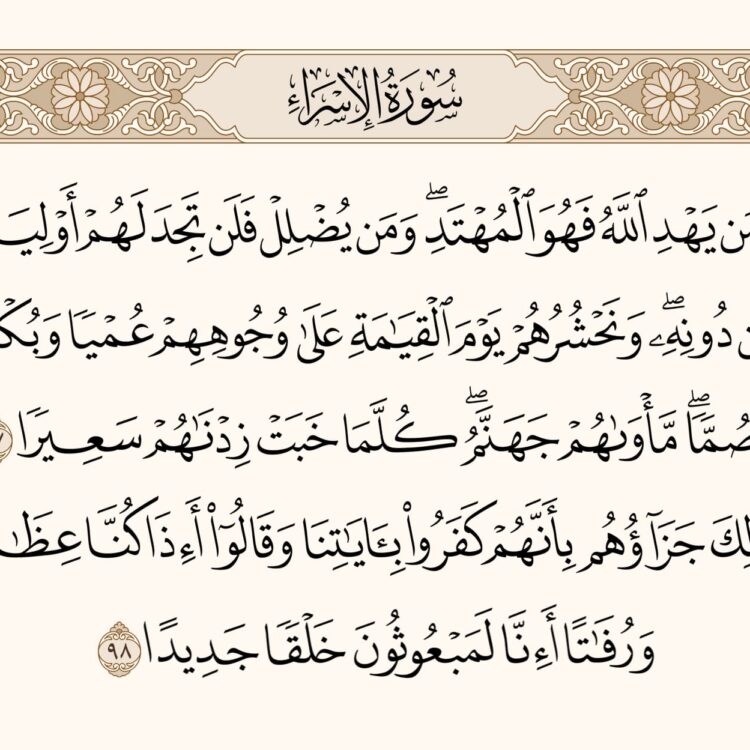 سُورَةُ الإِسْرَاءِ
مَن يَهْدِ ٱللَّهُ فَهُوَ ٱلْمُهْتَدِۖ وَمَن يُضْلِلْ فَلَن تَجِدَ لَهُمْ أَوْلِيَا
ن دُونِهِۦۖ وَنَحْشُرُهُمْ يَوْمَ ٱلْقِيَـٰمَةِ عَلَىٰ وُجُوهِهِمْ عُمْيًا وَبُكْ
صُمًّاۖ مَّأْوَىٰهُمْ جَهَنَّمُۖ كُلَّمَا خَبَتْ زِدْنَـٰهُمْ سَعِيرًا ٧
لِكَ جَزَآؤُهُم بِأَنَّهُمْ كَفَرُوا۟ بِـَٔايَـٰتِنَا وَقَالُوٓا۟ أَءِذَا كُنَّا عِظَـٰ
وَرُفَـٰتًا أَءِنَّا لَمَبْعُوثُونَ خَلْقًا جَدِيدًا ٩٨